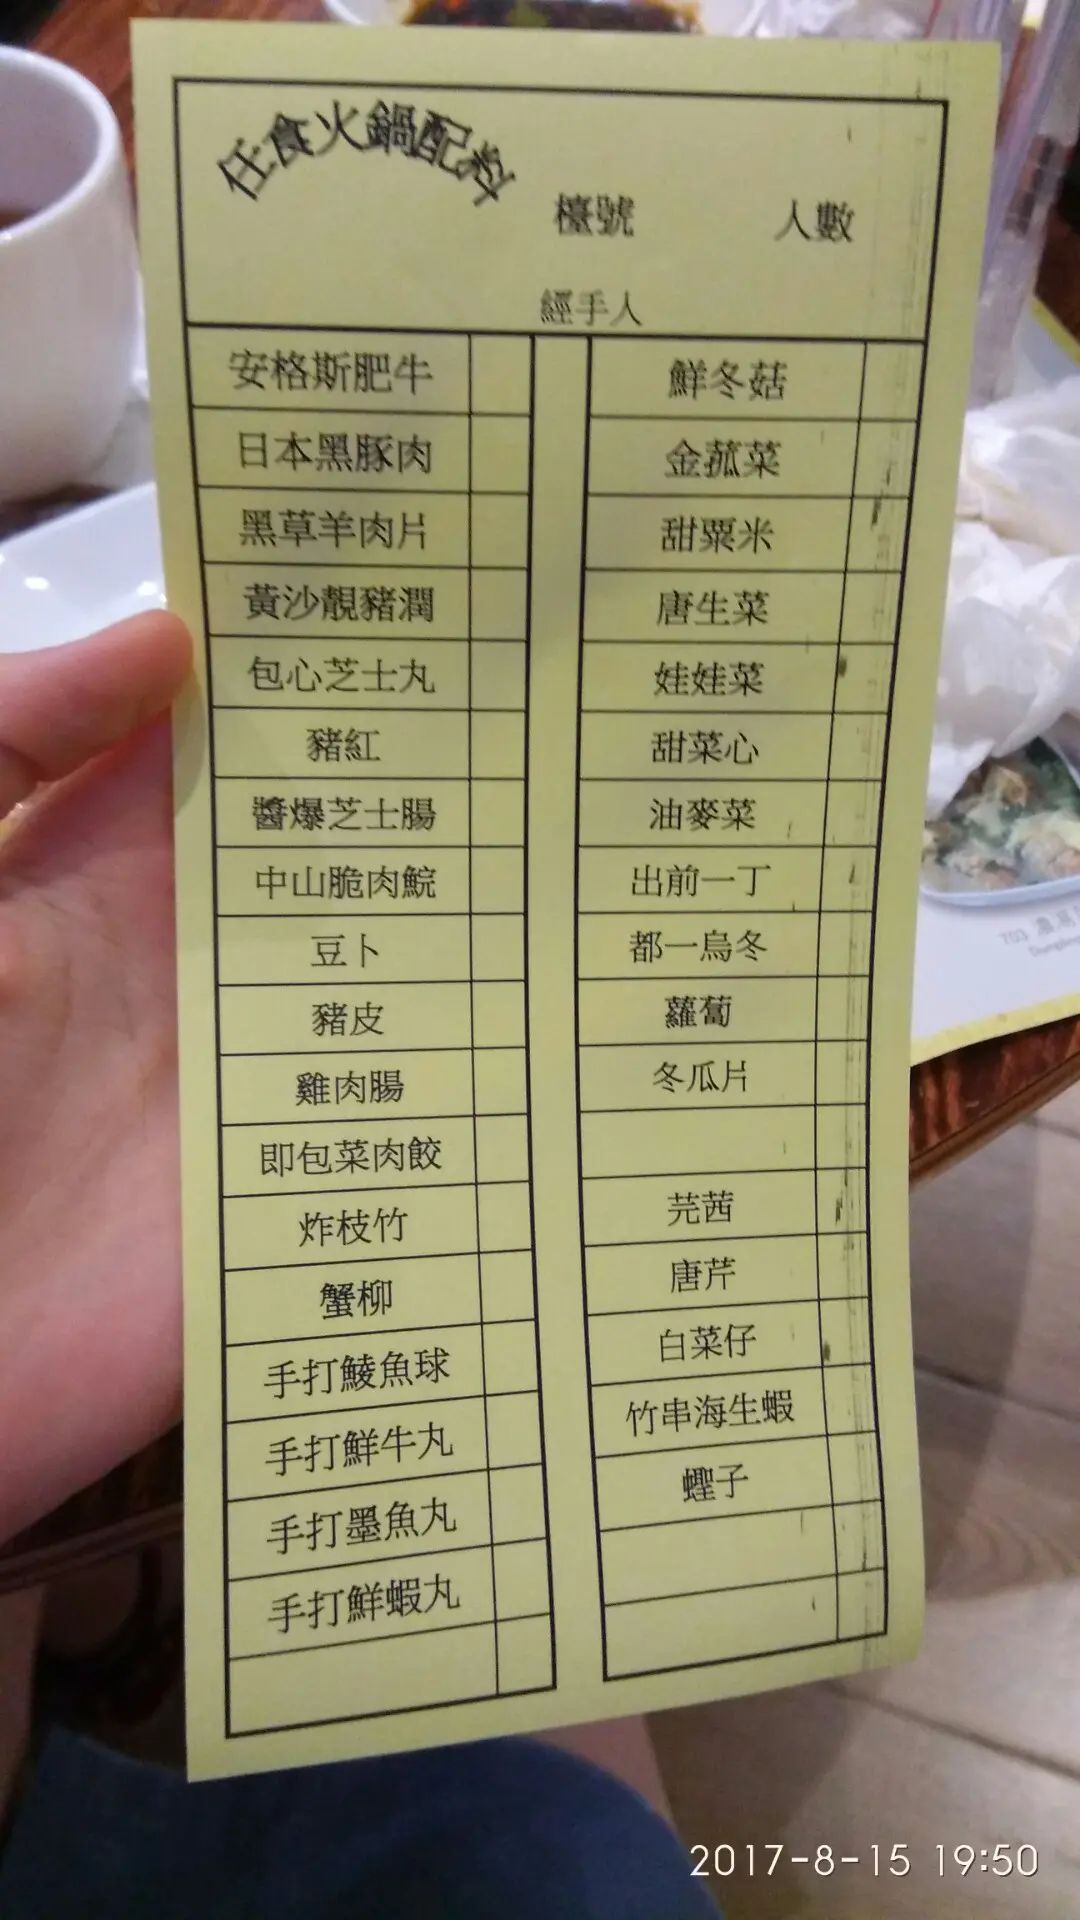 任食火鍋配料
檯號
人數
經手人
安格斯肥牛
日本黑豚肉
黑草羊肉片
黃沙靚豬潤
包心芝士丸
豬紅
醬爆芝士腸
中山脆肉鯇
豆卜
豬皮
雞肉腸
即包菜肉餃
炸枝竹
蟹柳
手打鯪魚球
手打鮮牛丸
手打墨魚丸
手打鮮蝦丸
鮮冬菇
金菰菜
甜粟米
唐生菜
娃娃菜
甜菜心
油麥菜
出前一丁
都一烏冬
蘿蔔
冬瓜片
芫茜
唐芹
白菜仔
竹串海生蝦
蟶子
703
2017-8-15 19:50